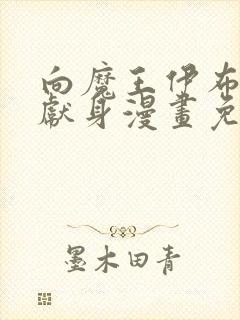 向魔王伊布
獻身漫畫免
墨木田青